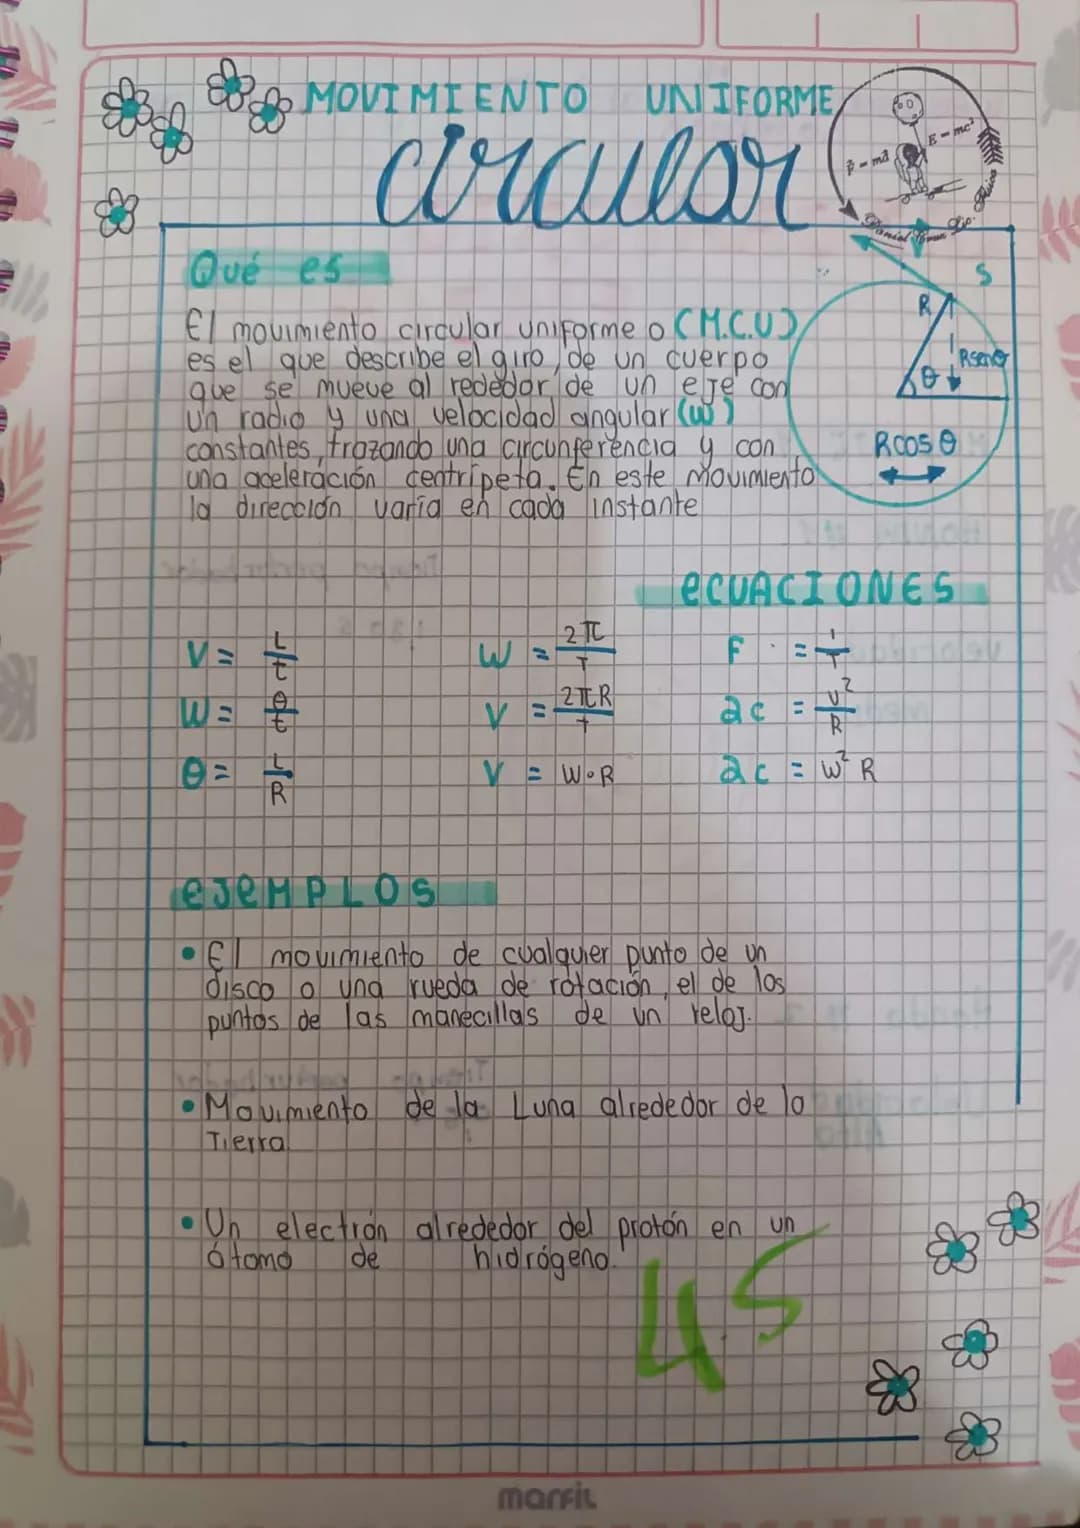 MOVIMIENTO UNIFORME
circular
E=mc²
Qué es
El movimiento circular uniforme o (M.C.U)
es el que describe el giro, de un cuerpo
que se mueve al rededor de un eje con
un radio y una velocidad angular (w)
constantes, trazando una circunferencia y con
una aceleración centripeta. En este movimiento
la dirección varia en cada instante
V
S
R
Rsenθ
θ
Rcos θ
ECUACIONES
V = L/t
W = 2π/T
F = 1/T
W = θ/t
V = 2πR/T
ac = v²/R
θ = L/R
V = W·R
ac = W² R
EJEMPLOS
• El movimiento de cualquier punto de un
disco o una rueda de rotación, el de los
puntos de las manecillas de un reloj.
• Movimiento de la Luna alrededor de la
Tierra.
• Un electrón alrededor del protón en un
átomo de hidrógeno.
4.5
marfil